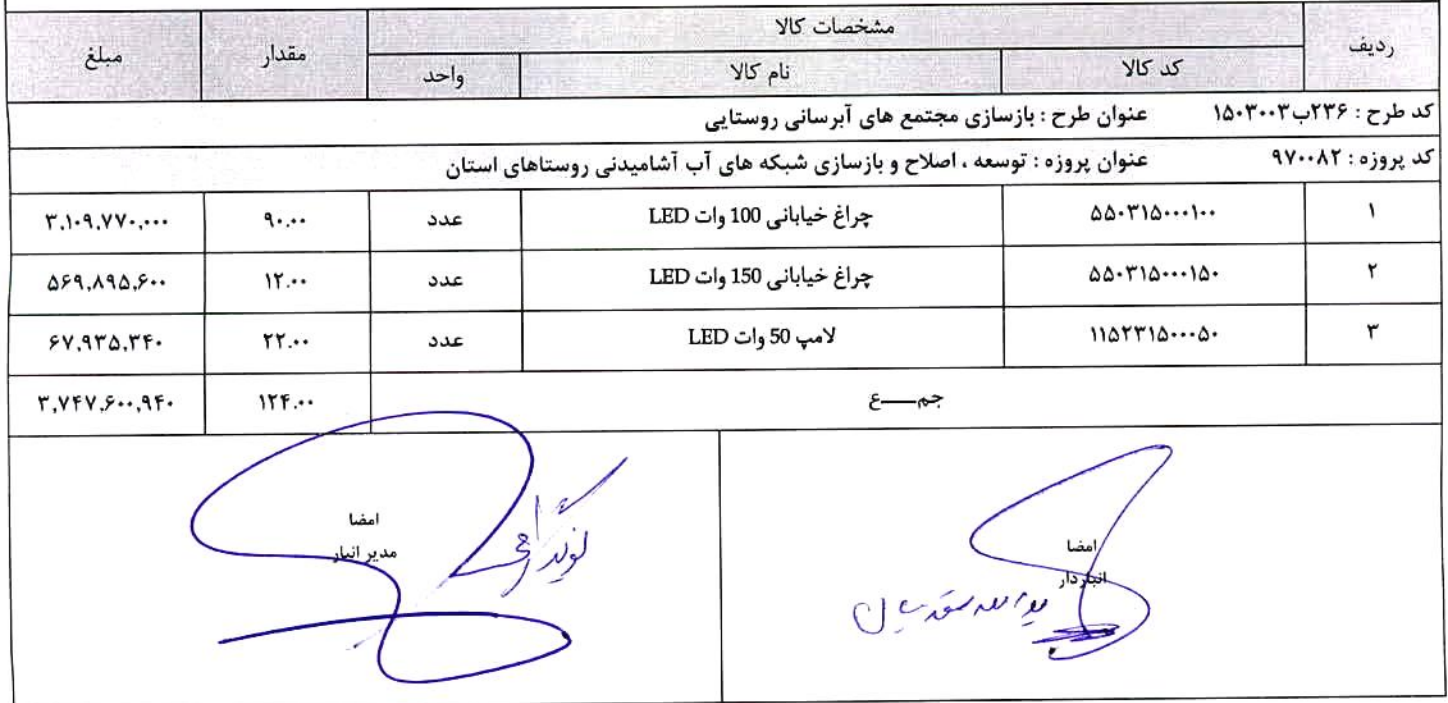 ردیف مشخصات کالا مقدار مبلغ
کد کالا نام کالا واحد
کد طرح : ۲۳۶ب۱۵۰۳۰۰۳ عنوان طرح : بازسازی مجتمع های آبرسانی روستایی
کد پروژه : ۹۷۰۰۸۲ عنوان پروژه : توسعه ، اصلاح و بازسازی شبکه های آب آشامیدنی روستاهای استان
۱ ۵۵۰۳۱۵۰۰۰۱۰۰ چراغ خیابانی 100 وات LED عدد ۹۰.۰۰ ۳,۱۰۹,۷۷۰,۰۰۰
۲ ۵۵۰۳۱۵۰۰۰۱۵۰ چراغ خیابانی 150 وات LED عدد ۱۲.۰۰ ۵۶۹,۸۹۵,۶۰۰
۳ ۱۱۵۲۳۱۵۰۰۰۵۰ لامپ 50 وات LED عدد ۲۲.۰۰ ۶۷,۹۳۵,۳۴۰
جمـــع ۱۲۴.۰۰ ۳,۷۴۷,۶۰۰,۹۴۰
امضا
انباردار
امضا
مدیر انبار